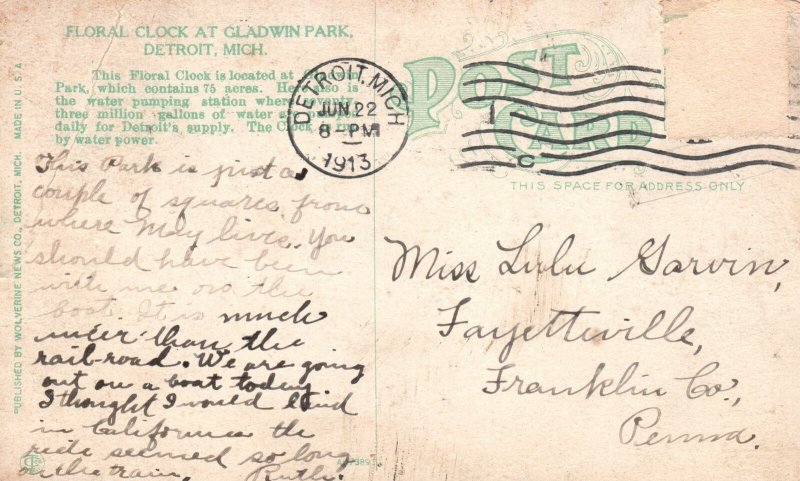 FLORAL CLOCK AT GLADWIN PARK,
DETROIT, MICH.
This Floral Clock is located at
Park, which contains 75 acres. Here also is
the water pumping station where seventy
three million gallons of water
daily for Detroit's supply. The Clock is run
by water power.
POST
CARD
DETROIT, MICH
JUN 22
8-PM
1913
THIS SPACE FOR ADDRESS ONLY
PUBLISHED BY WOLVERINE NEWS CO., DETROIT, MICH. MADE IN U.S.A.
This Park is just a
couple of squares from
where May lives. You
should have been
with me on the
boat. It is much
nicer than the
rail-road. We are going
out on a boat today
I thought I would land
in California the
ride seemed so long
on the train, Ruth.
Miss Lulu Garvin,
Fayetteville,
Franklin Co.,
Penna.